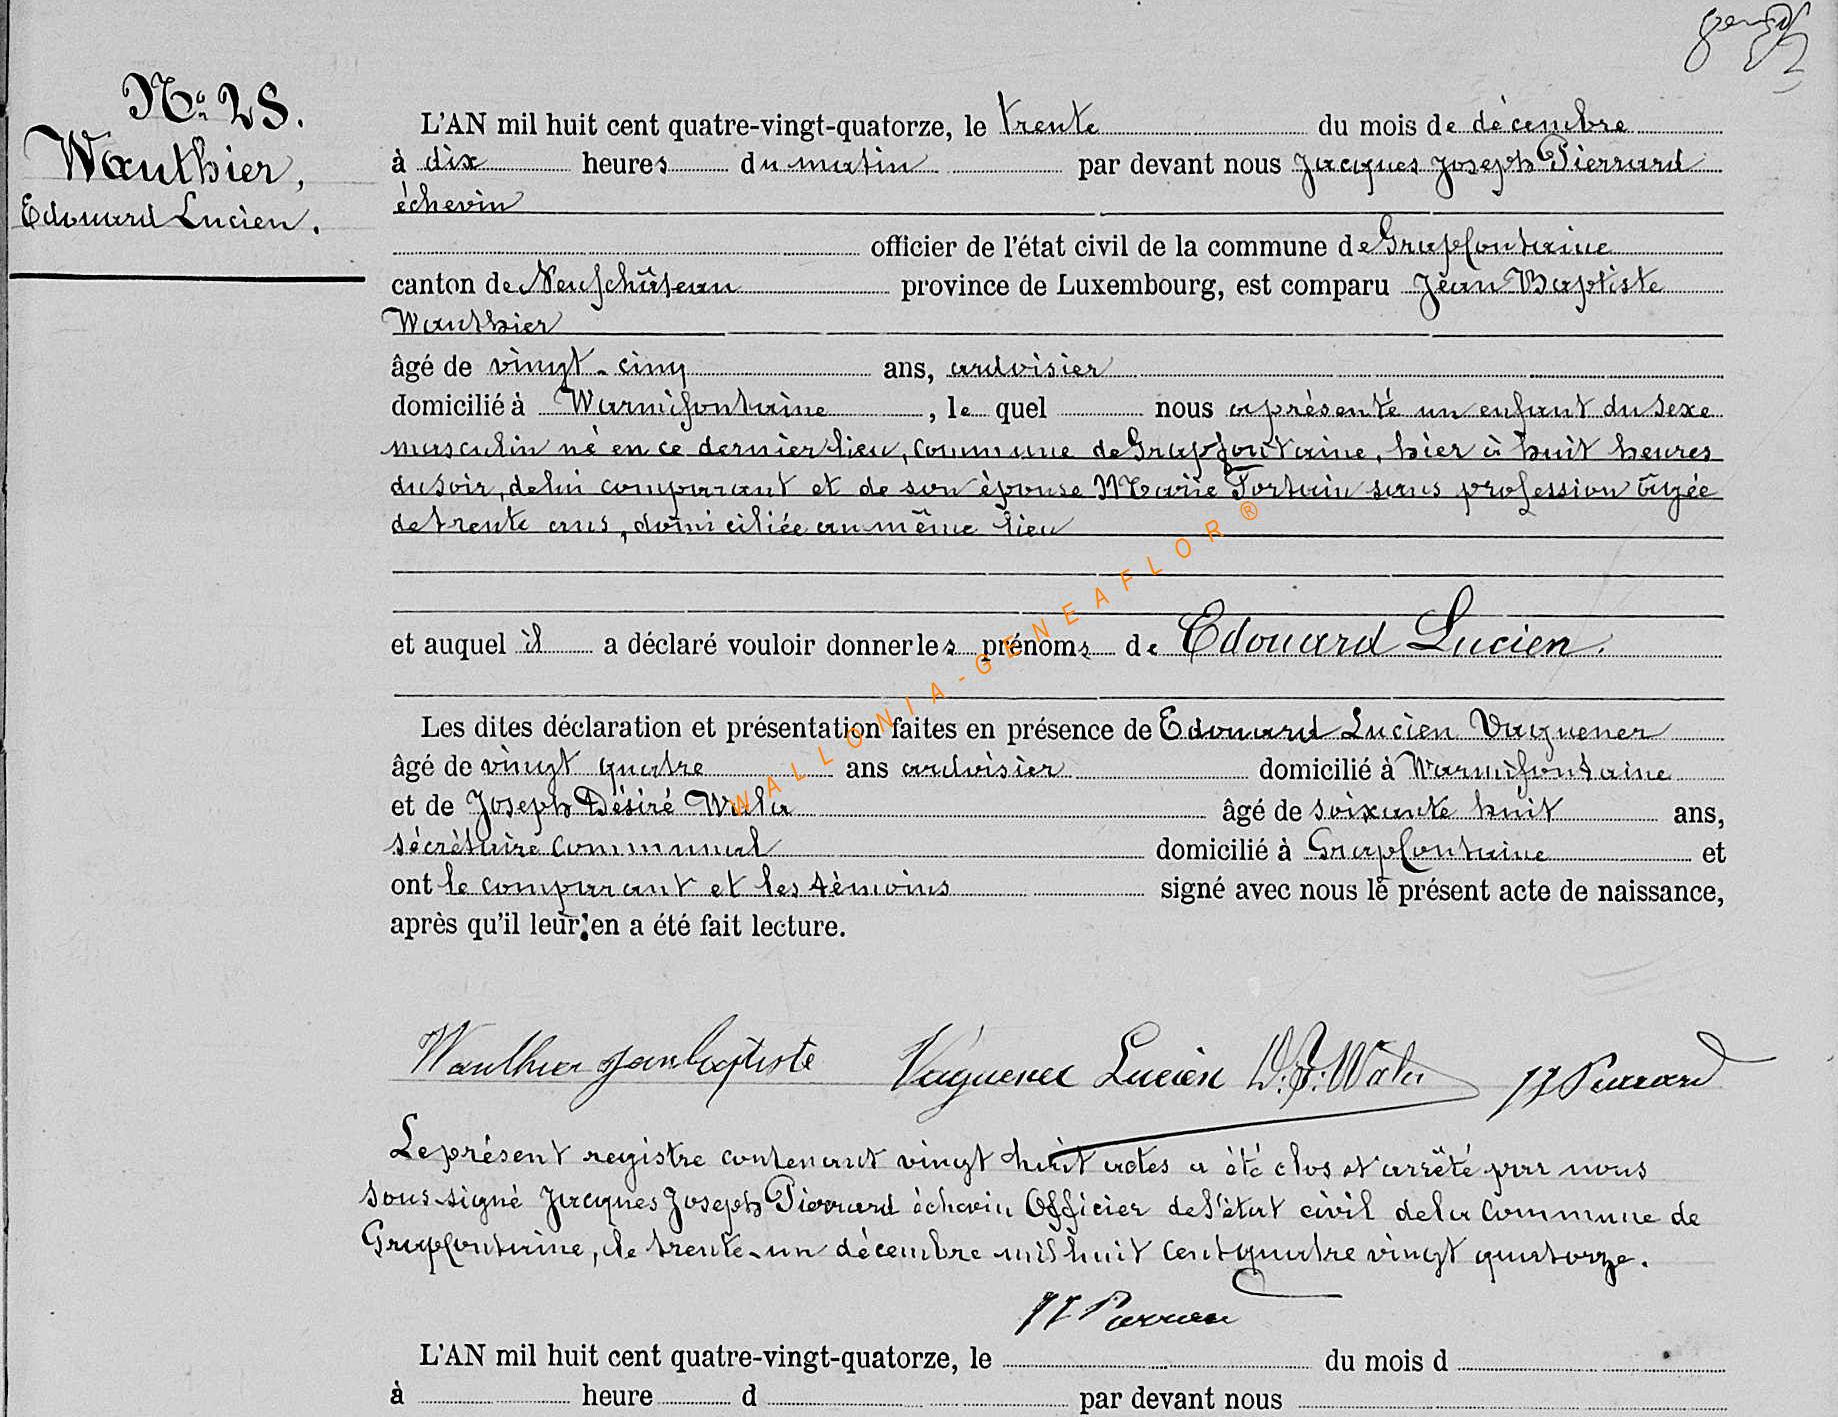 N° 28.
Wauthier,
Edouard Lucien.
L'AN mil huit cent quatre-vingt-quatorze, le trente du mois de décembre
à dix heures du matin par devant nous Jacques Joseph Pierrard
échevin
officier de l'état civil de la commune de Grapfontaine
canton de Neufchâteau province de Luxembourg, est comparu Jean Baptiste
Wauthier
âgé de vingt-cinq ans, ardoisier
domicilié à Warmifontaine, le quel nous a présenté un enfant du sexe
masculin né en ce dernier lieu, commune de Grapfontaine, hier à huit heures
du soir, de lui comparant et de son épouse Marie Fortain sans profession âgée
de trente ans, domiciliée au même lieu
et auquel il a déclaré vouloir donner les prénoms de Edouard Lucien.
Les dites déclaration et présentation faites en présence de Edouard Lucien Vaguener
âgé de vingt quatre ans ardoisier domicilié à Warmifontaine
et de Joseph Désiré Wala âgé de soixante huit ans,
sécrétaire communal domicilié à Grapfontaine et
ont le comparant et les témoins signé avec nous le présent acte de naissance,
après qu'il leur en a été fait lecture.
Wauthier jean baptiste Vaguener Lucien D. J. Wala JJ Pierrard
Le présent registre contenant vingt huit actes a été clos et arrêté par nous
sous-signé Jacques Joseph Pierrard échevin Officier de l'état civil de la Commune de
Grapfontaine, le trente-un décembre mil huit cent quatre vingt quatorze.
JJ Pierrard
L'AN mil huit cent quatre-vingt-quatorze, le du mois d
à heure d par devant nous
WALLONIA-GENEAFLOR ®